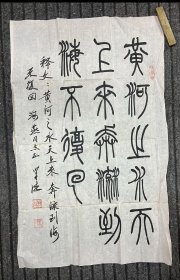 黄河之水天
上来奔流到
海不復回
释文黄河之水天上来奔流到海
不復回